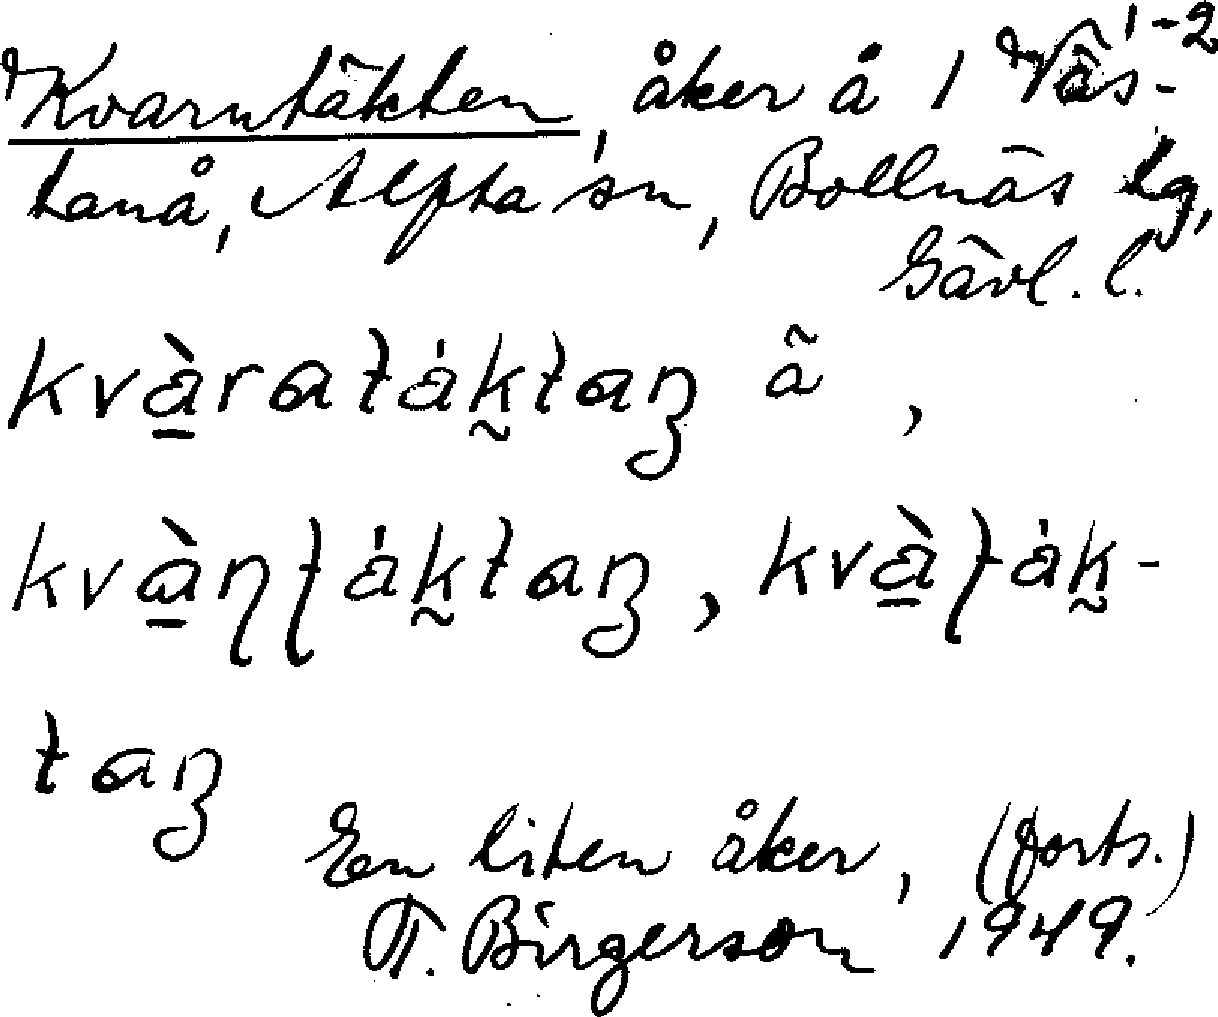 Kvarntäkten, åker å 1 Väs-¹⁻²
tanå, Alfta sn, Bollnäs tg,
Gävl. l.
kvàratáktaȵ ã ,
kvàɳʈáktaȵ, kvàʈák-
taȵ
En liten åker, (forts.)
T. Birgerson 1949.